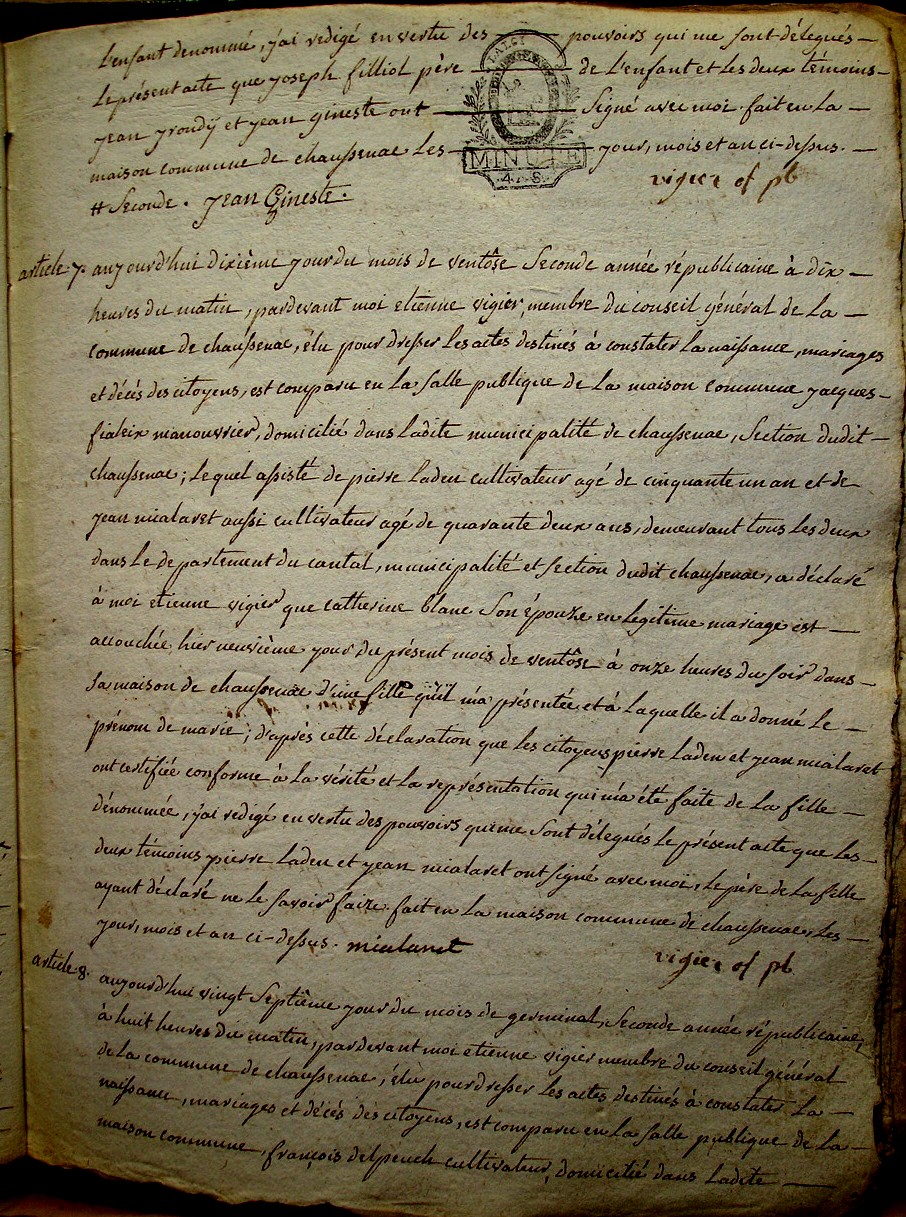 L'enfant denommé, j'ai redigé en vertu des pouvoirs qui me sont délegués
Le présent acte que joseph filliol père de L'enfant et Les deux témoins
jean et jean gineste ont signé avec moi. fait en La
maison commune de chaussenac Les jour, mois et an ci-dessus.
MINUTE
4. S.
# Seconde. jean Gineste. vigier of pb
article 7. aujourd'hui dixième jour du mois de ventôse Seconde année républicaine à dix
heures du matin, pardevant moi etienne vigier, membre du conseil général de La
commune de chaussenac, élu pour dresser Les actes destinés à constater La naissance, mariages
et décés des citoyens, est comparu en La Salle publique de La maison commune jacques
fialeix manouvrier, domicilié dans Ladite municipalité de chaussenac, Section dudit
chaussenac; Lequel assisté de pierre Laden cultivateur agé de cinquante un an et de
jean mialaret aussi cultivateur agé de quarante deux ans, demeurant tous Les deux
dans Le departement du cantal, municipalité et Section dudit chaussenac, a déclaré
à moi etienne vigier que catherine blanc Son épouze en Légitime mariage est
accouchée hier neuvième jour du présent mois de ventôse à onze heures du Soir dans
sa maison de chaussenac d'une fille qu'il m'a présentée et à Laquelle il a donné Le
prénom de marie; d'après cette déclaration que Les citoyens pierre Laden et jean mialaret
ont certifiée conforme à La vérité et La représentation qui m'a été faite de La fille
dénommée, j'ai redigé en vertu des pouvoirs qui me Sont délegués Le présent acte que Les
deux témoins pierre Laden et jean mialaret ont signé avec moi, Le père de La fille
ayant déclaré ne Le Savoir faire. fait en La maison commune de chaussenac, Les
jour, mois et an ci-dessus. mialaret vigier of pb
article 8. aujourd'hui vingt Septième jour du mois de germinal, Seconde année républicaine,
à huit heures du matin, pardevant moi etienne vigier membre du conseil général
de La commune de chaussenac, élu pour dresser Les actes destinés à constater La
naissance, mariages et décés des citoyens, est comparu en La Salle publique de La
maison commune, françois delpeuch cultivateur, domicilié dans Ladite